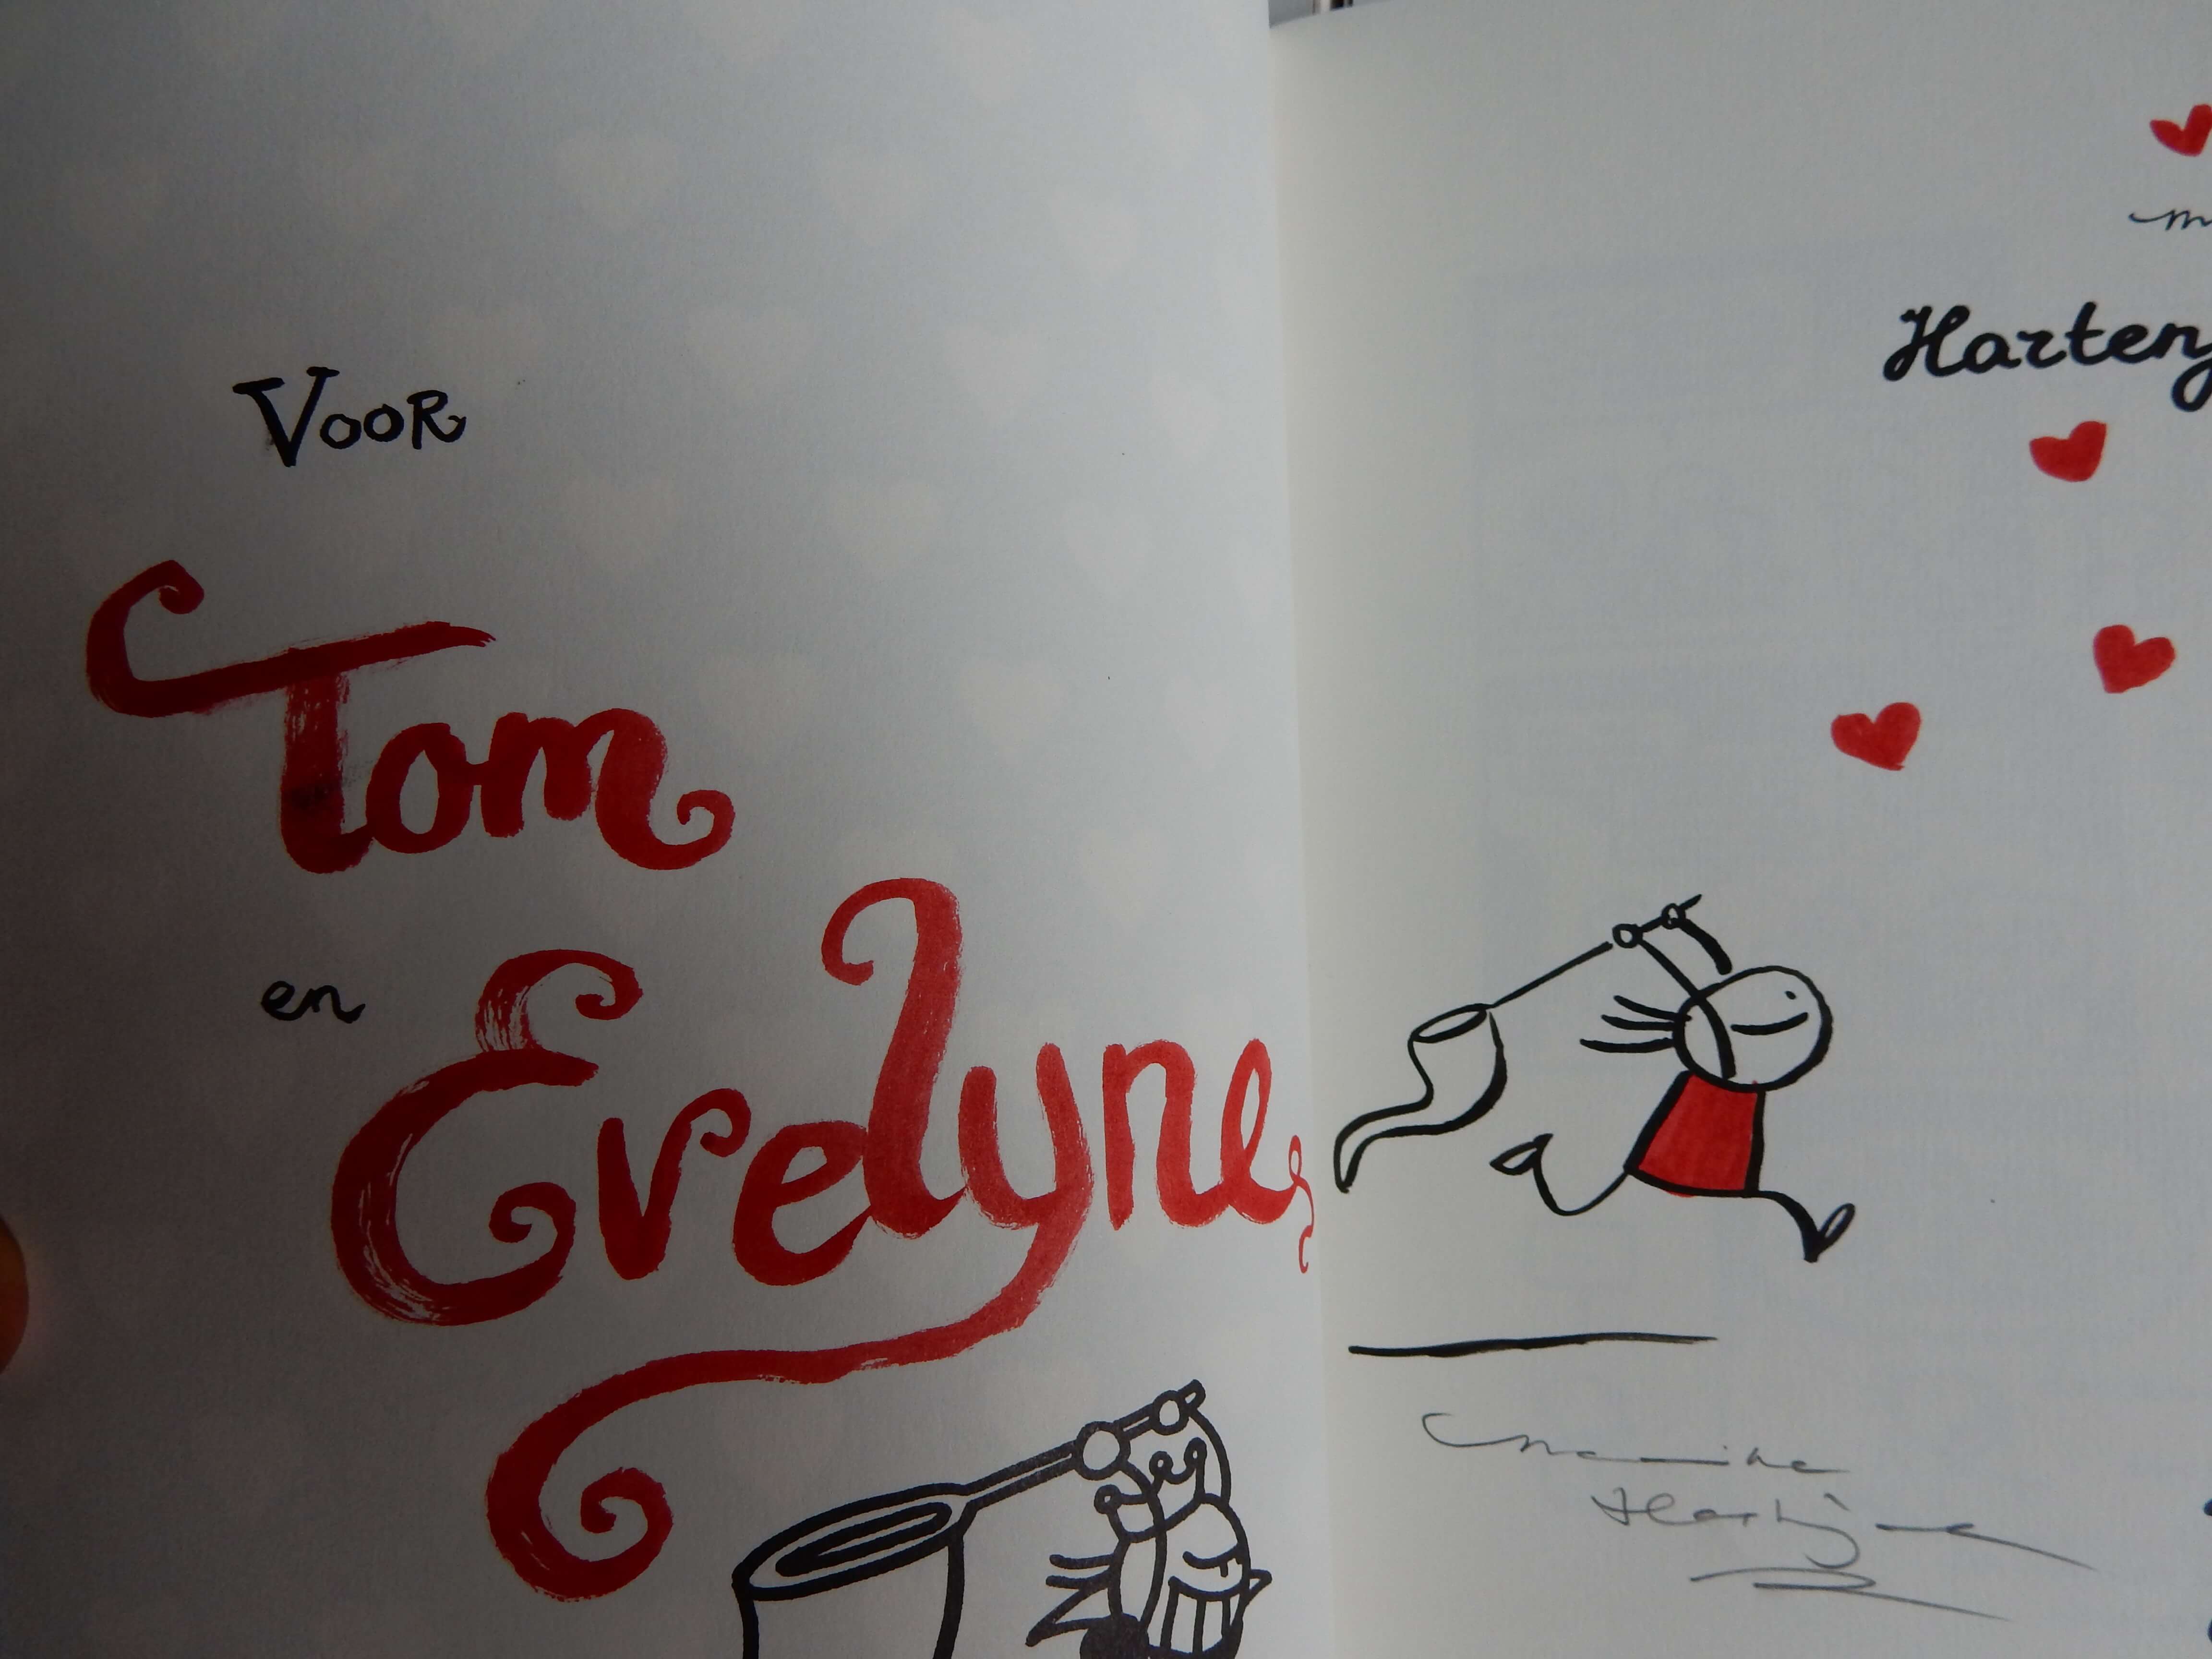 Voor
Tom
en
Evelyne
m
Harten
Marike